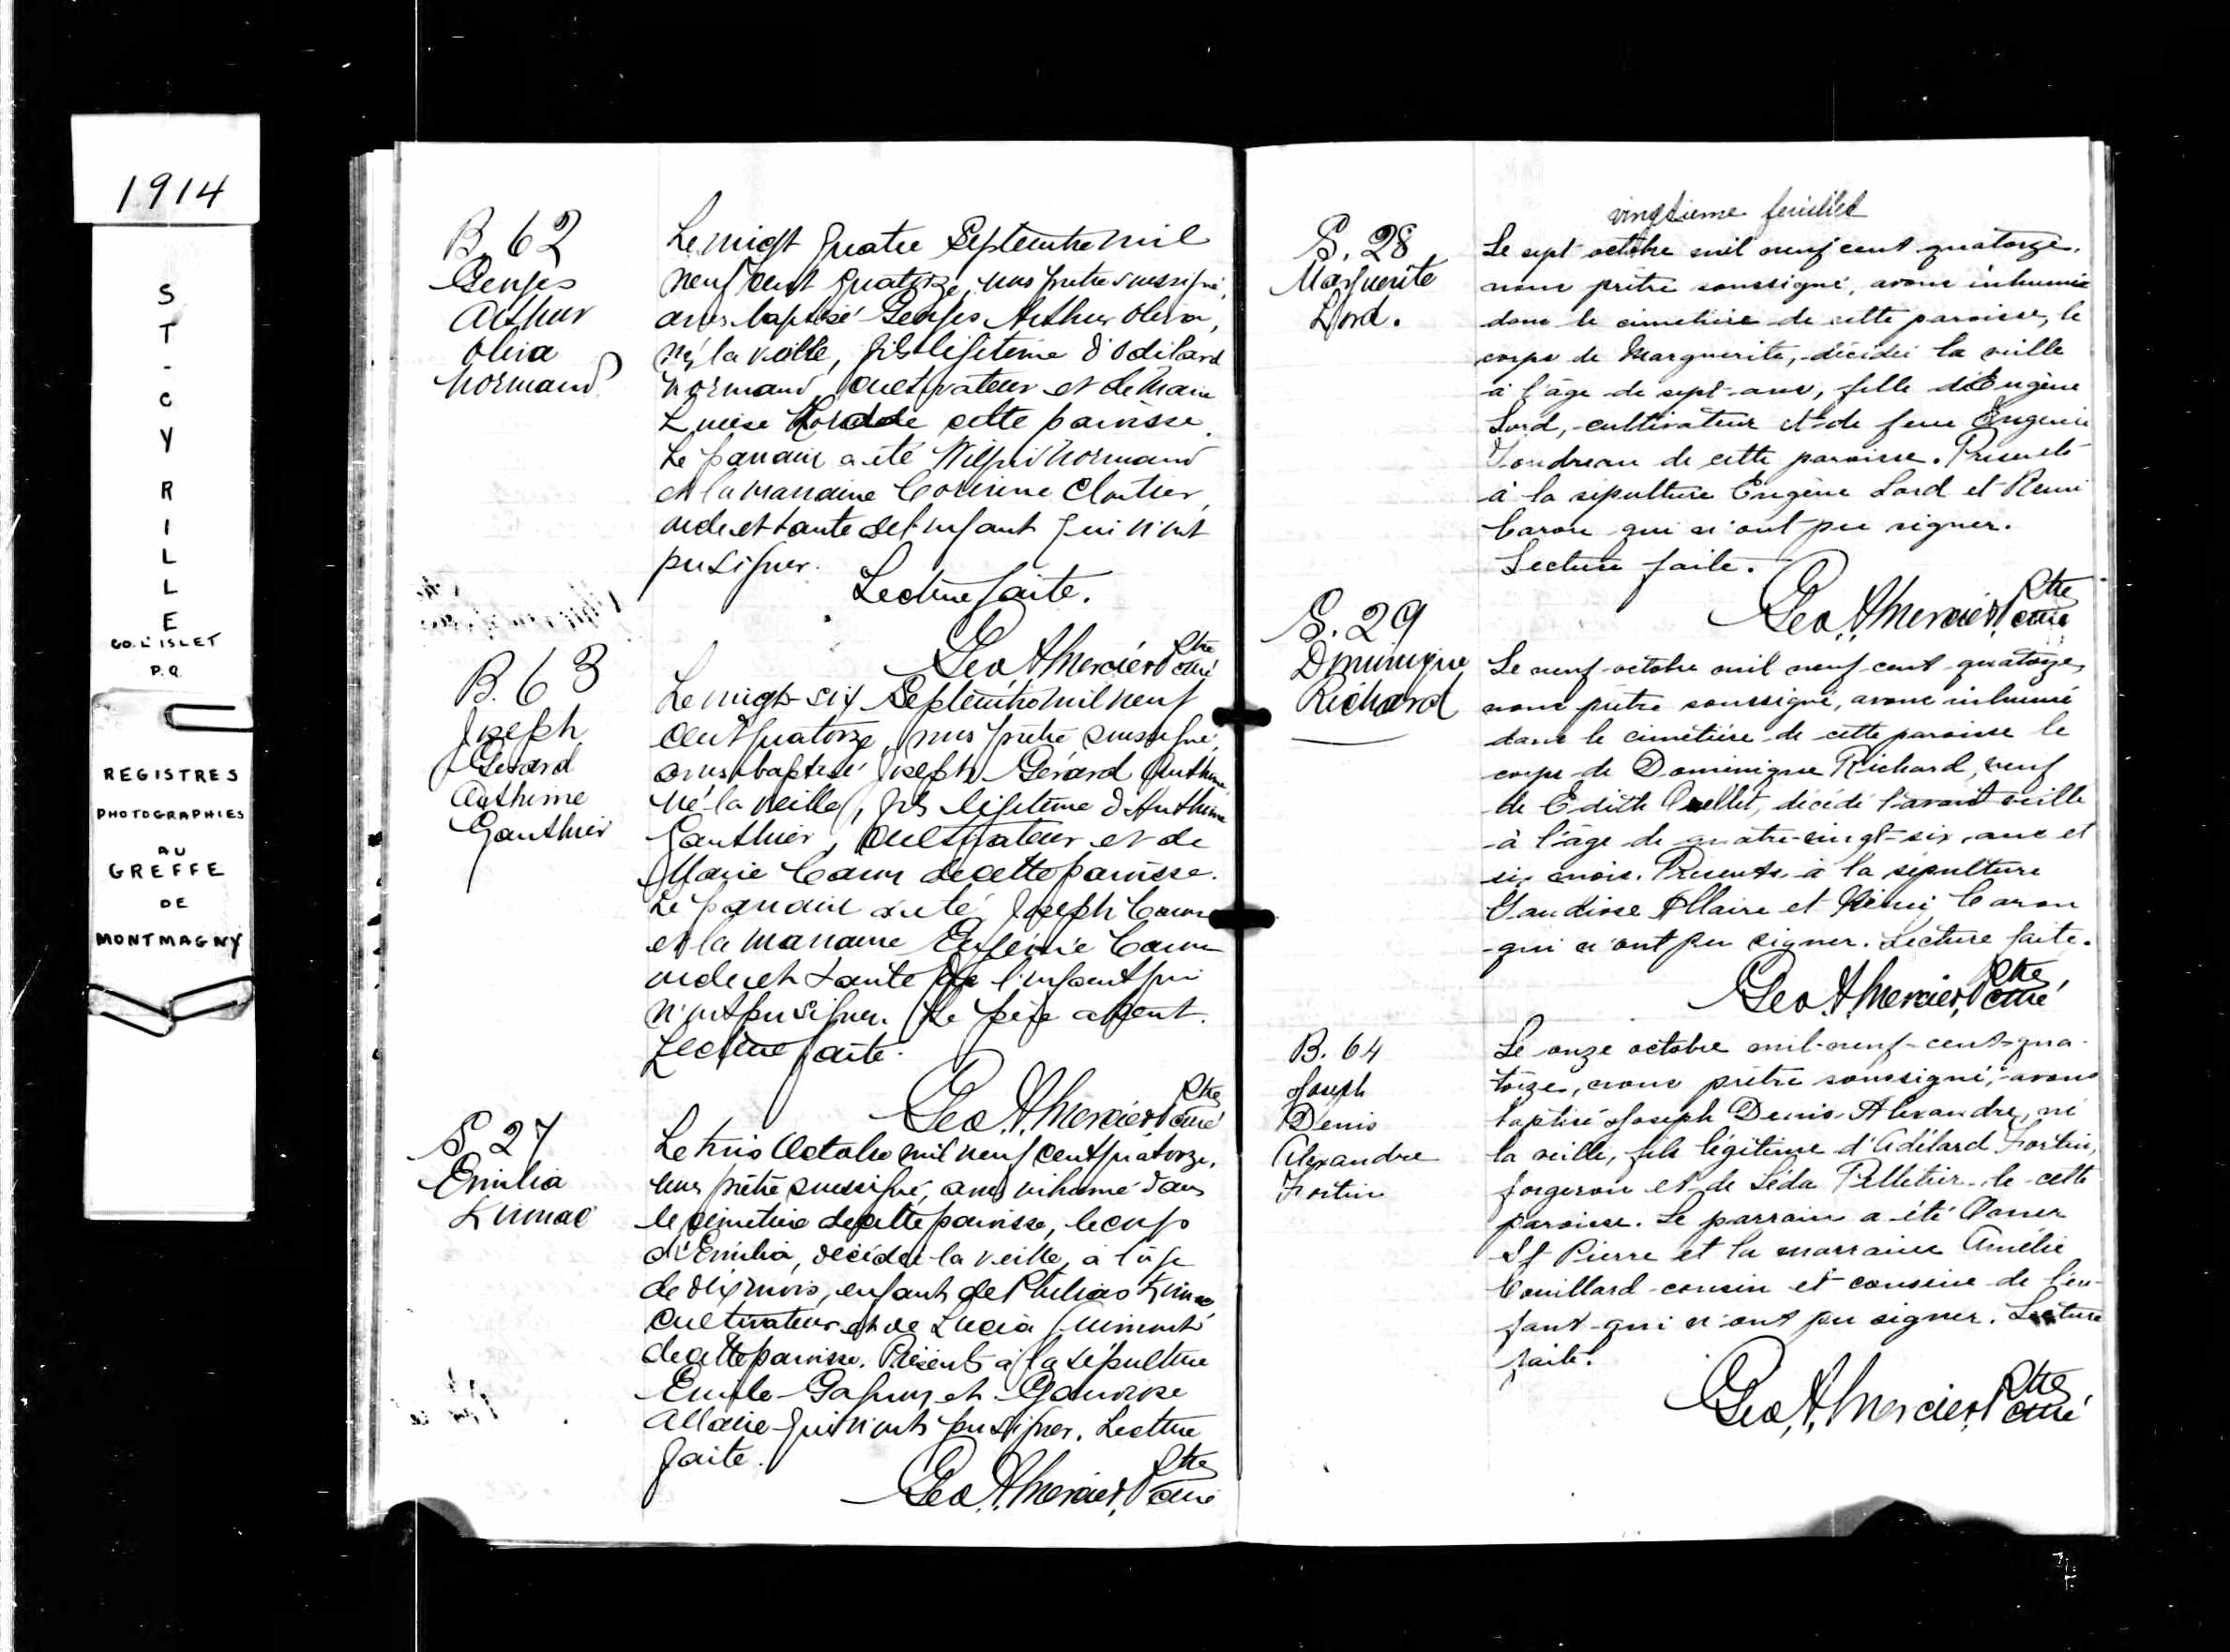 1914
ST-CYRILLE
CO. L'ISLET
P.Q.
REGISTRES
PHOTOGRAPHIES
AU
GREFFE
DE
MONTMAGNY
B. 62
Georges
Arthur
Oliva
Normand
Le vingt quatre Septembre mil
neuf cent quatorze, nous prêtre soussigné,
avons baptisé Georges Arthur Oliva,
né la veille, fils légitime d'Odilard
Normand cultivateur et de Marie
Louise de cette paroisse.
Le parrain a été Wilfrid Normand
et la marraine Corinne Cloutier,
oncle et tante de l'enfant qui n'ont
pu signer.
Lecture faite.
Geo. A. Mercier, Ptre
curé
B. 63
Joseph
Gérard
Anthime
Gauthier
Le vingt-six Septembre mil neuf
cent quatorze, nous prêtre soussigné,
avons baptisé Joseph Gérard Anthime,
né la veille, fils légitime d'Anthime
Gauthier, cultivateur et de
Marie Caron de cette paroisse.
Le parrain a été Joseph Caron
et la marraine Eugénie Caron
oncle et tante de l'enfant qui
n'ont pu signer. Le père absent.
Lecture faite.
Geo. A. Mercier, Ptre
curé
S. 27
Emilia
Le trois Octobre mil neuf cent quatorze,
nous prêtre soussigné, avons inhumé dans
le cimetière de cette paroisse, le corps
d'Emilia, décédée la veille, à l'âge
de dix mois, enfant de Philias
cultivateur et de Lucia Guimont
de cette paroisse. Présents à la sépulture
Emile Gagnon et Gaudiose
Allaire qui n'ont pu signer. Lecture
faite.
Geo. A. Mercier, Ptre
curé
vingtième feuillet
S. 28
Marguerite
Lord.
Le sept octobre mil neuf cent quatorze,
nous prêtre soussigné, avons inhumé
dans le cimetière de cette paroisse, le
corps de Marguerite, décédée la veille
à l'âge de sept ans, fille d'Eugène
Lord, cultivateur et de feue Eugénie
Gaudreau de cette paroisse. Présents
à la sépulture Eugène Lord et Rémi
Caron qui n'ont pu signer.
Lecture faite.
Geo. A. Mercier, Ptre
curé
S. 29
Dominique
Richard
Le neuf octobre mil neuf cent quatorze,
nous prêtre soussigné, avons inhumé
dans le cimetière de cette paroisse le
corps de Dominique Richard, veuf
de Edith Ouellet, décédé l'avant veille
à l'âge de quatre-vingt-six ans et
six mois. Présents à la sépulture
Gaudiose Allaire et Rémi Caron
qui n'ont pu signer. Lecture faite.
Geo. A. Mercier, Ptre
curé
B. 64
Joseph
Denis
Alexandre
Fortin
Le onze octobre mil-neuf-cent-qua-
torze, nous prêtre soussigné, avons
baptisé Joseph Denis Alexandre, né
la veille, fils légitime d'Adélard Fortin,
forgeron et de Léda Pelletier de cette
paroisse. Le parrain a été Omer
St Pierre et la marraine Amélie
Couillard cousin et cousine de l'en-
fant qui n'ont pu signer. Lecture
faite.
Geo. A. Mercier, Ptre
curé